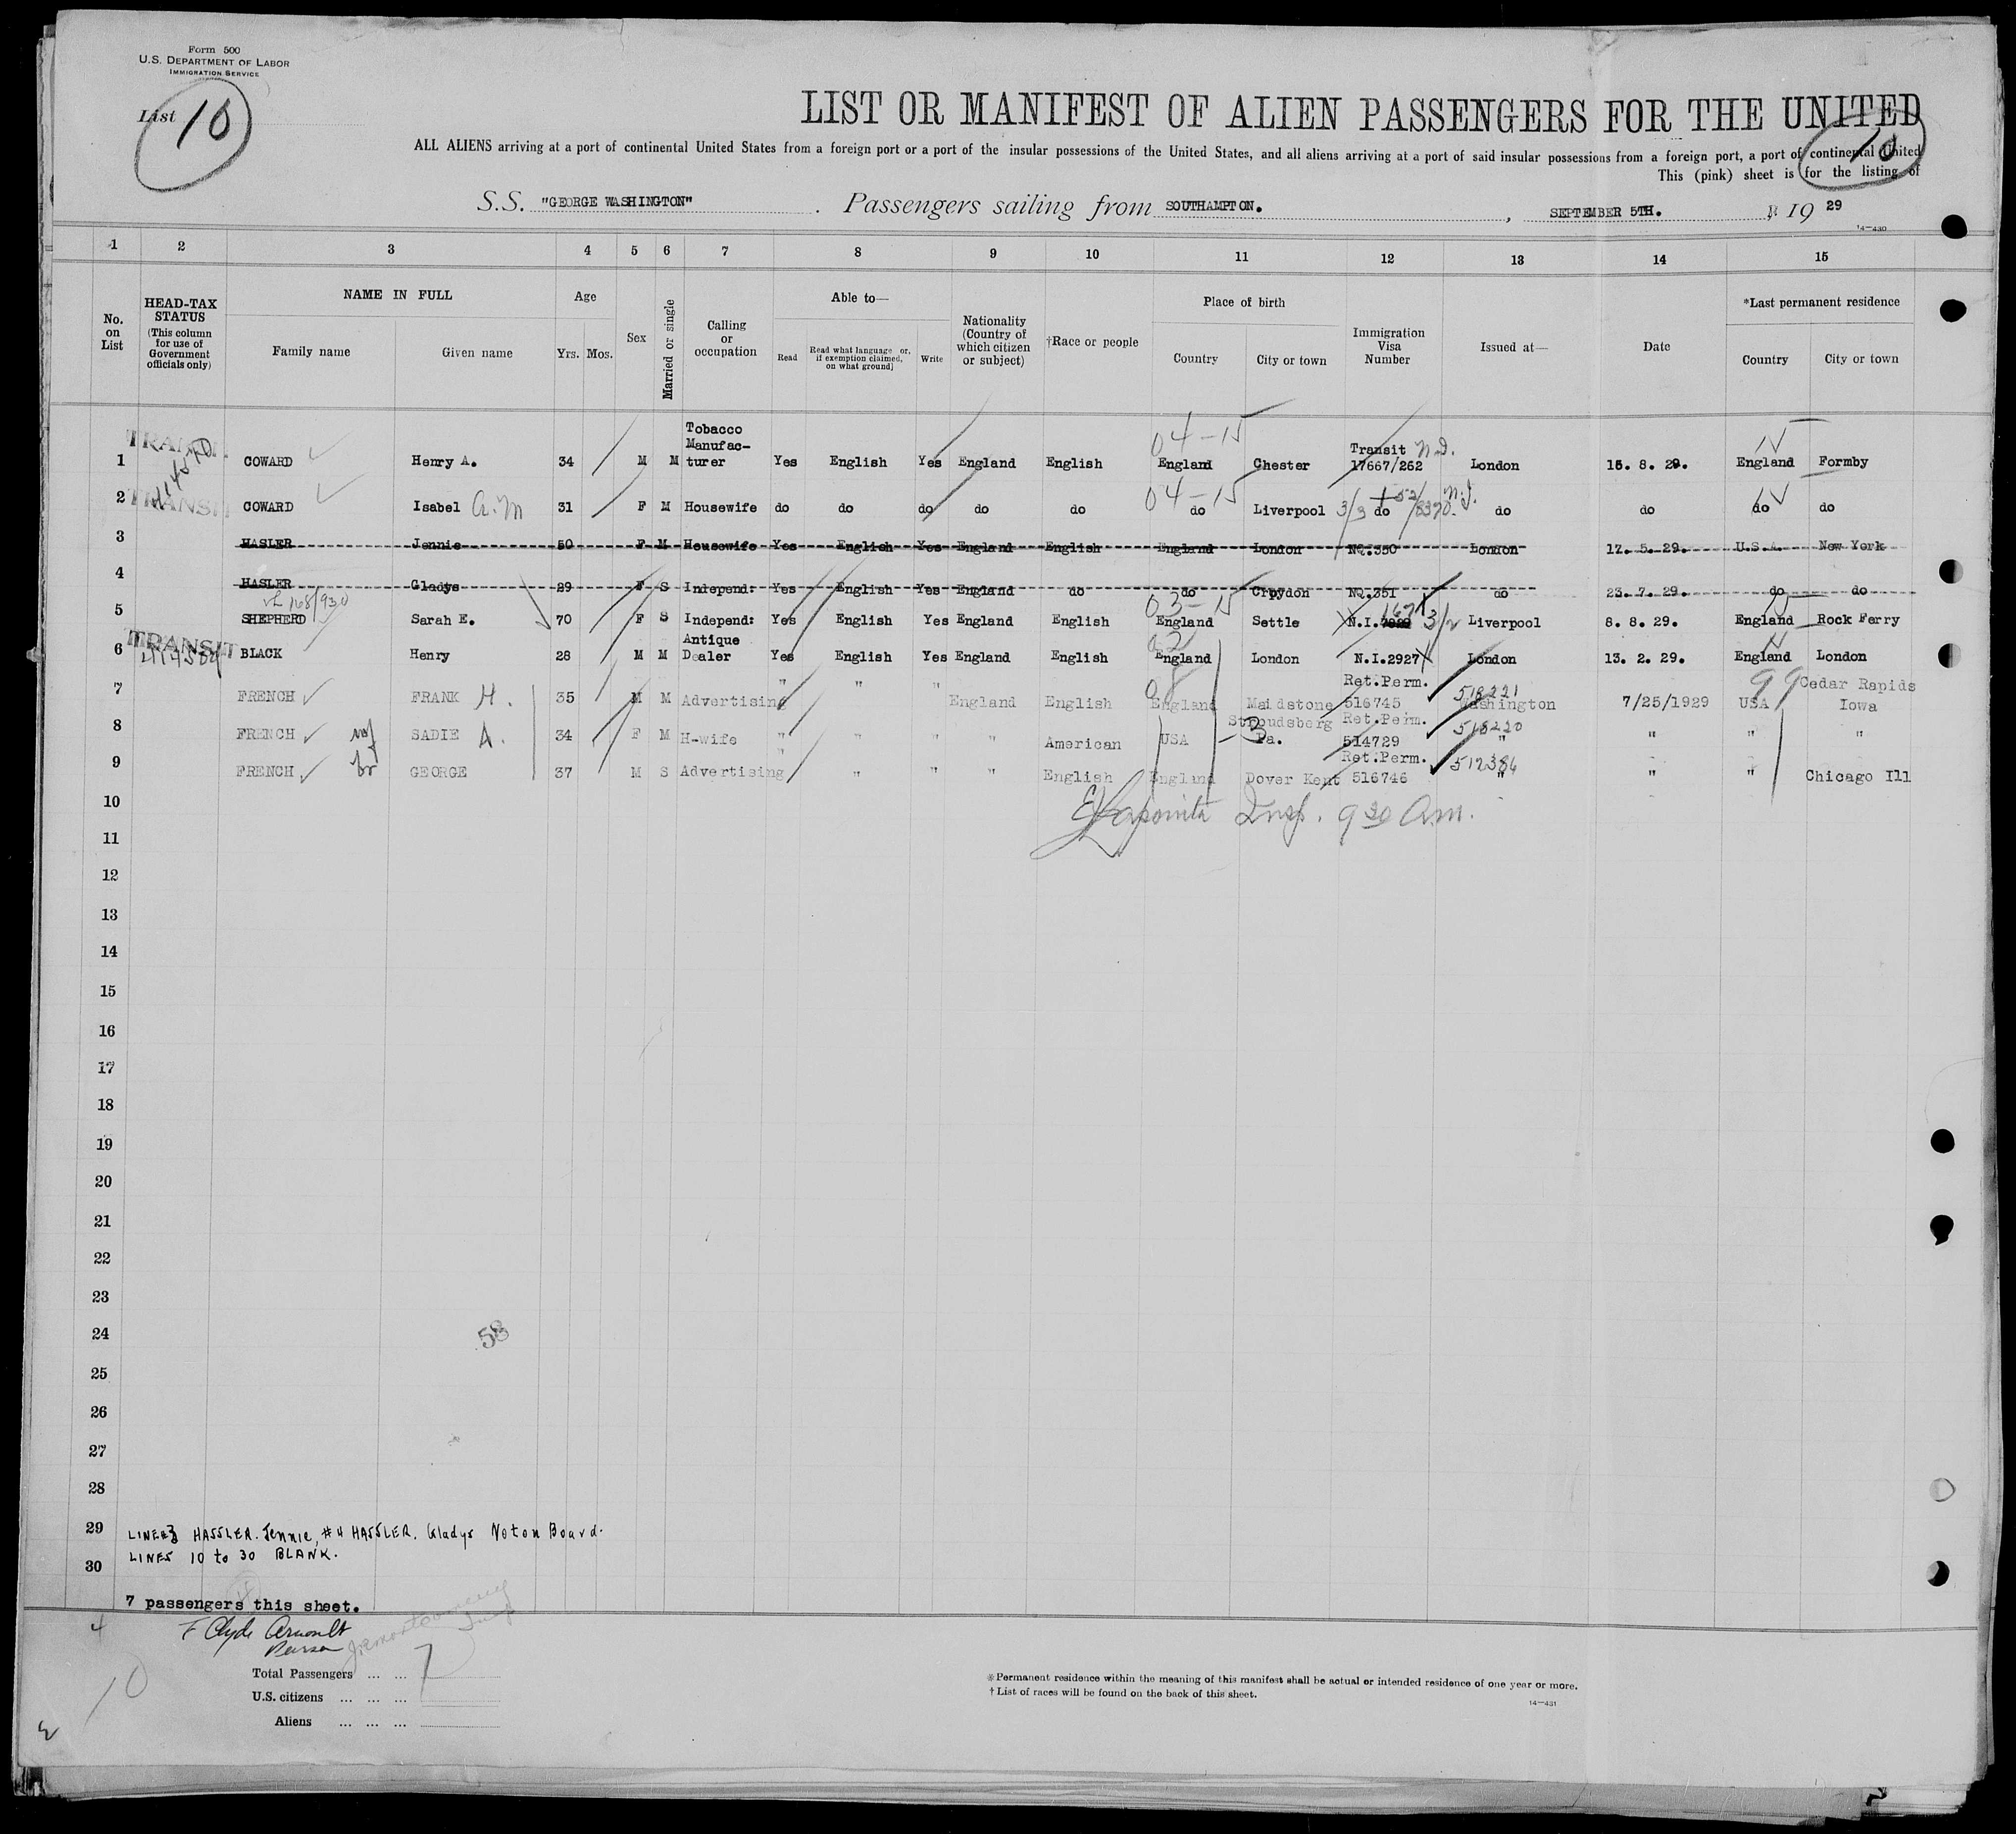 Form 500
U.S. DEPARTMENT OF LABOR
IMMIGRATION SERVICE
List 10
LIST OR MANIFEST OF ALIEN PASSENGERS FOR THE UNITED
10
ALL ALIENS arriving at a port of continental United States from a foreign port or a port of the insular possessions of the United States, and all aliens arriving at a port of said insular possessions from a foreign port, a port of continental United
This (pink) sheet is for the listing of
S.S. "GEORGE WASHINGTON" . Passengers sailing from SOUTHAMPTON. , SEPTEMBER 5TH. , 19 29
14—430
1 2 3 4 5 6 7 8 9 10 11 12 13 14 15
No. on List
HEAD-TAX STATUS (This column for use of Government officials only)
NAME IN FULL
Family name Given name
Age
Yrs. Mos.
Sex
Married or single
Calling or occupation
Able to—
Read
Read what language or, if exemption claimed, on what ground]
Write
Nationality (Country of which citizen or subject)
†Race or people
Place of birth
Country City or town
Immigration Visa Number
Issued at—
Date
*Last permanent residence
Country City or town
1 TRANSIT COWARD Henry A. 34 M M Tobacco Manufac-turer Yes English Yes England English 04-15 England Chester Transit 17667/262 London 15. 8. 29. England Formby
2 TRANSIT COWARD Isabel A.M 31 F M Housewife do do do do do 04-15 do Liverpool 3/3 do do do do do
3 HASLER Jennie 50 F M Housewife Yes English Yes England English England London NQ.350 London 17. 5. 29. U.S.A. New York
4 HASLER Gladys 29 F S Independ: Yes English Yes England do do Croydon NQ.351 do 23. 7. 29. do do
168/930
5 SHEPHERD Sarah E. 70 F S Independ: Yes English Yes England English 03-15 England Settle N.I. 1671 3/2 Liverpool 8. 8. 29. England Rock Ferry
6 TRANSIT BLACK Henry 28 M M Antique Dealer Yes English Yes England English England London N.I.2927 London 13. 2. 29. England London
7 FRENCH FRANK H. 35 M M Advertising " " " England English 08 England Maidstone Ret.Perm. 516745 518221 Washington 7/25/1929 99 USA Cedar Rapids Iowa
8 FRENCH wf SADIE A. 34 F M H-wife " " " " American USA - 3 Stroudsberg Pa. Ret.Perm. 514729 518220 " " " "
9 FRENCH br GEORGE 37 M S Advertising " " " " English England Dover Kent Ret.Perm. 516746 512384 " " " Chicago Ill
10 Insp. 9 30 A.m.
11
12
13
14
15
16
17
18
19
20
21
22
23
24
58
25
26
27
28
29 LINE#3 HASSLER. Jennie, #4 HASSLER. Gladys Not on Board.
LINES 10 to 30 BLANK.
30
7 passengers this sheet.
F Clyde Arnoult
Purser
4
10
Total Passengers ... ... 7
U.S. citizens ... ... ...
Aliens ... ... ...
*Permanent residence within the meaning of this manifest shall be actual or intended residence of one year or more.
†List of races will be found on the back of this sheet.
14—431